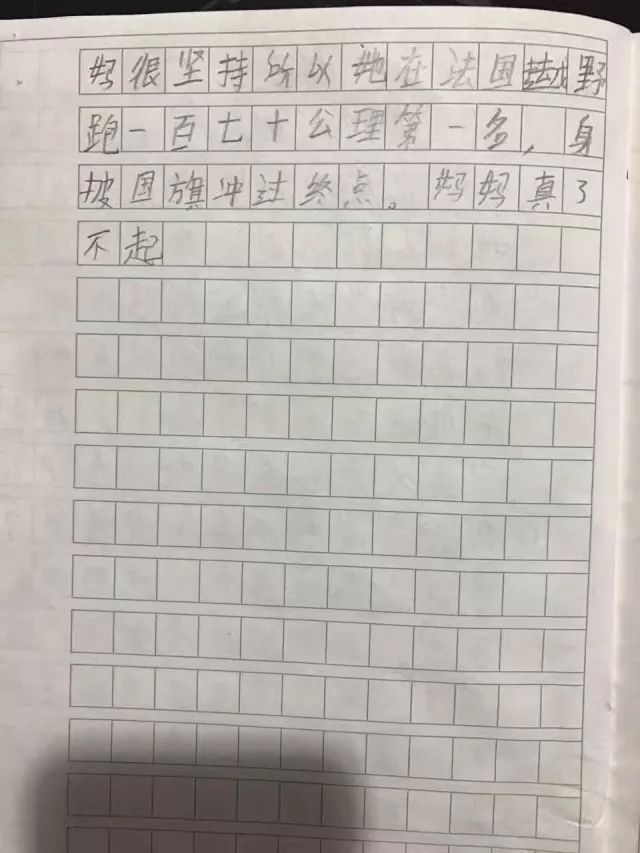 妈很坚持所以她在法国越野
跑一百七十公理第一名，身
披国旗冲过终点。妈妈真了
不起